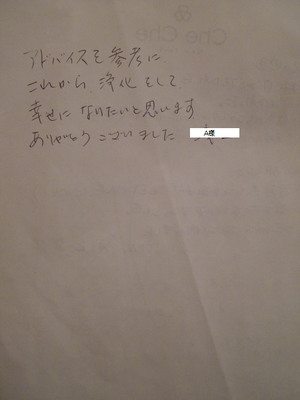 Che Che
アドバイスを参考に
これから、浄化をして
幸せになりたいと思います
ありがとうございました
A様